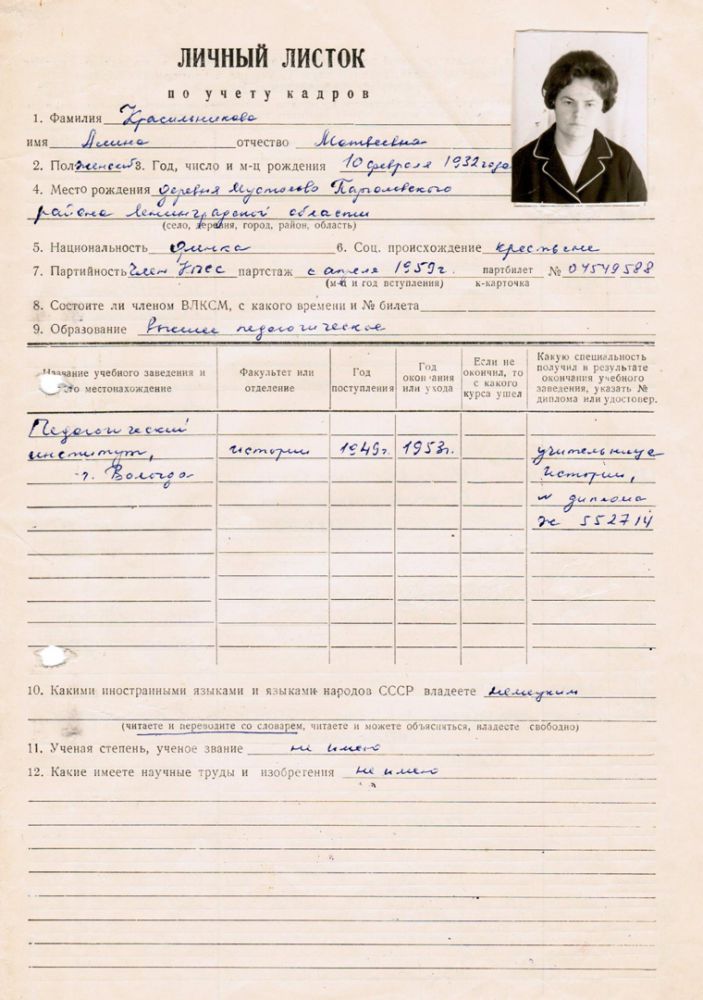 ЛИЧНЫЙ ЛИСТОК
по учету кадров
1. Фамилия Красильникова
имя Алина отчество Матвеевна
2. Пол женский 3. Год, число и м-ц рождения 10 февраля 1932 года
4. Место рождения деревня Мустолово Парголовского
района Ленинградской области
(село, деревня, город, район, область)
5. Национальность финка 6. Соц. происхождение крестьяне
7. Партийность Член КПСС партстаж с апреля 1959 г. партбилет № 04549588
(м-ц и год вступления) к-карточка
8. Состоите ли членом ВЛКСМ, с какого времени и № билета
9. Образование высшее педагогическое
Название учебного заведения и его местонахождение
Факультет или отделение
Год поступления
Год окончания или ухода
Если не окончил, то с какого курса ушел
Какую специальность получил в результате окончания учебного заведения, указать № диплома или удостовер.
Педагогический
институт, истории 1949 г. 1953 г. учительница
г. Вологда истории,
№ диплома
Ж 552714
10. Какими иностранными языками и языками народов СССР владеете немецким
(читаете и переводите со словарем, читаете и можете объясняться, владеете свободно)
11. Ученая степень, ученое звание не имею
12. Какие имеете научные труды и изобретения не имею